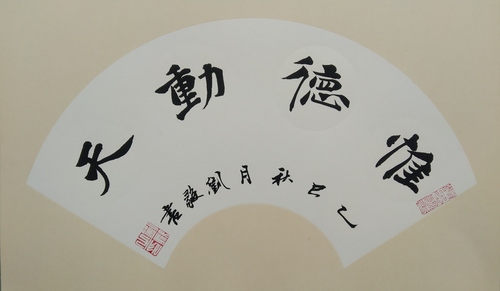 惟德動天
乙巳秋月劉毅書